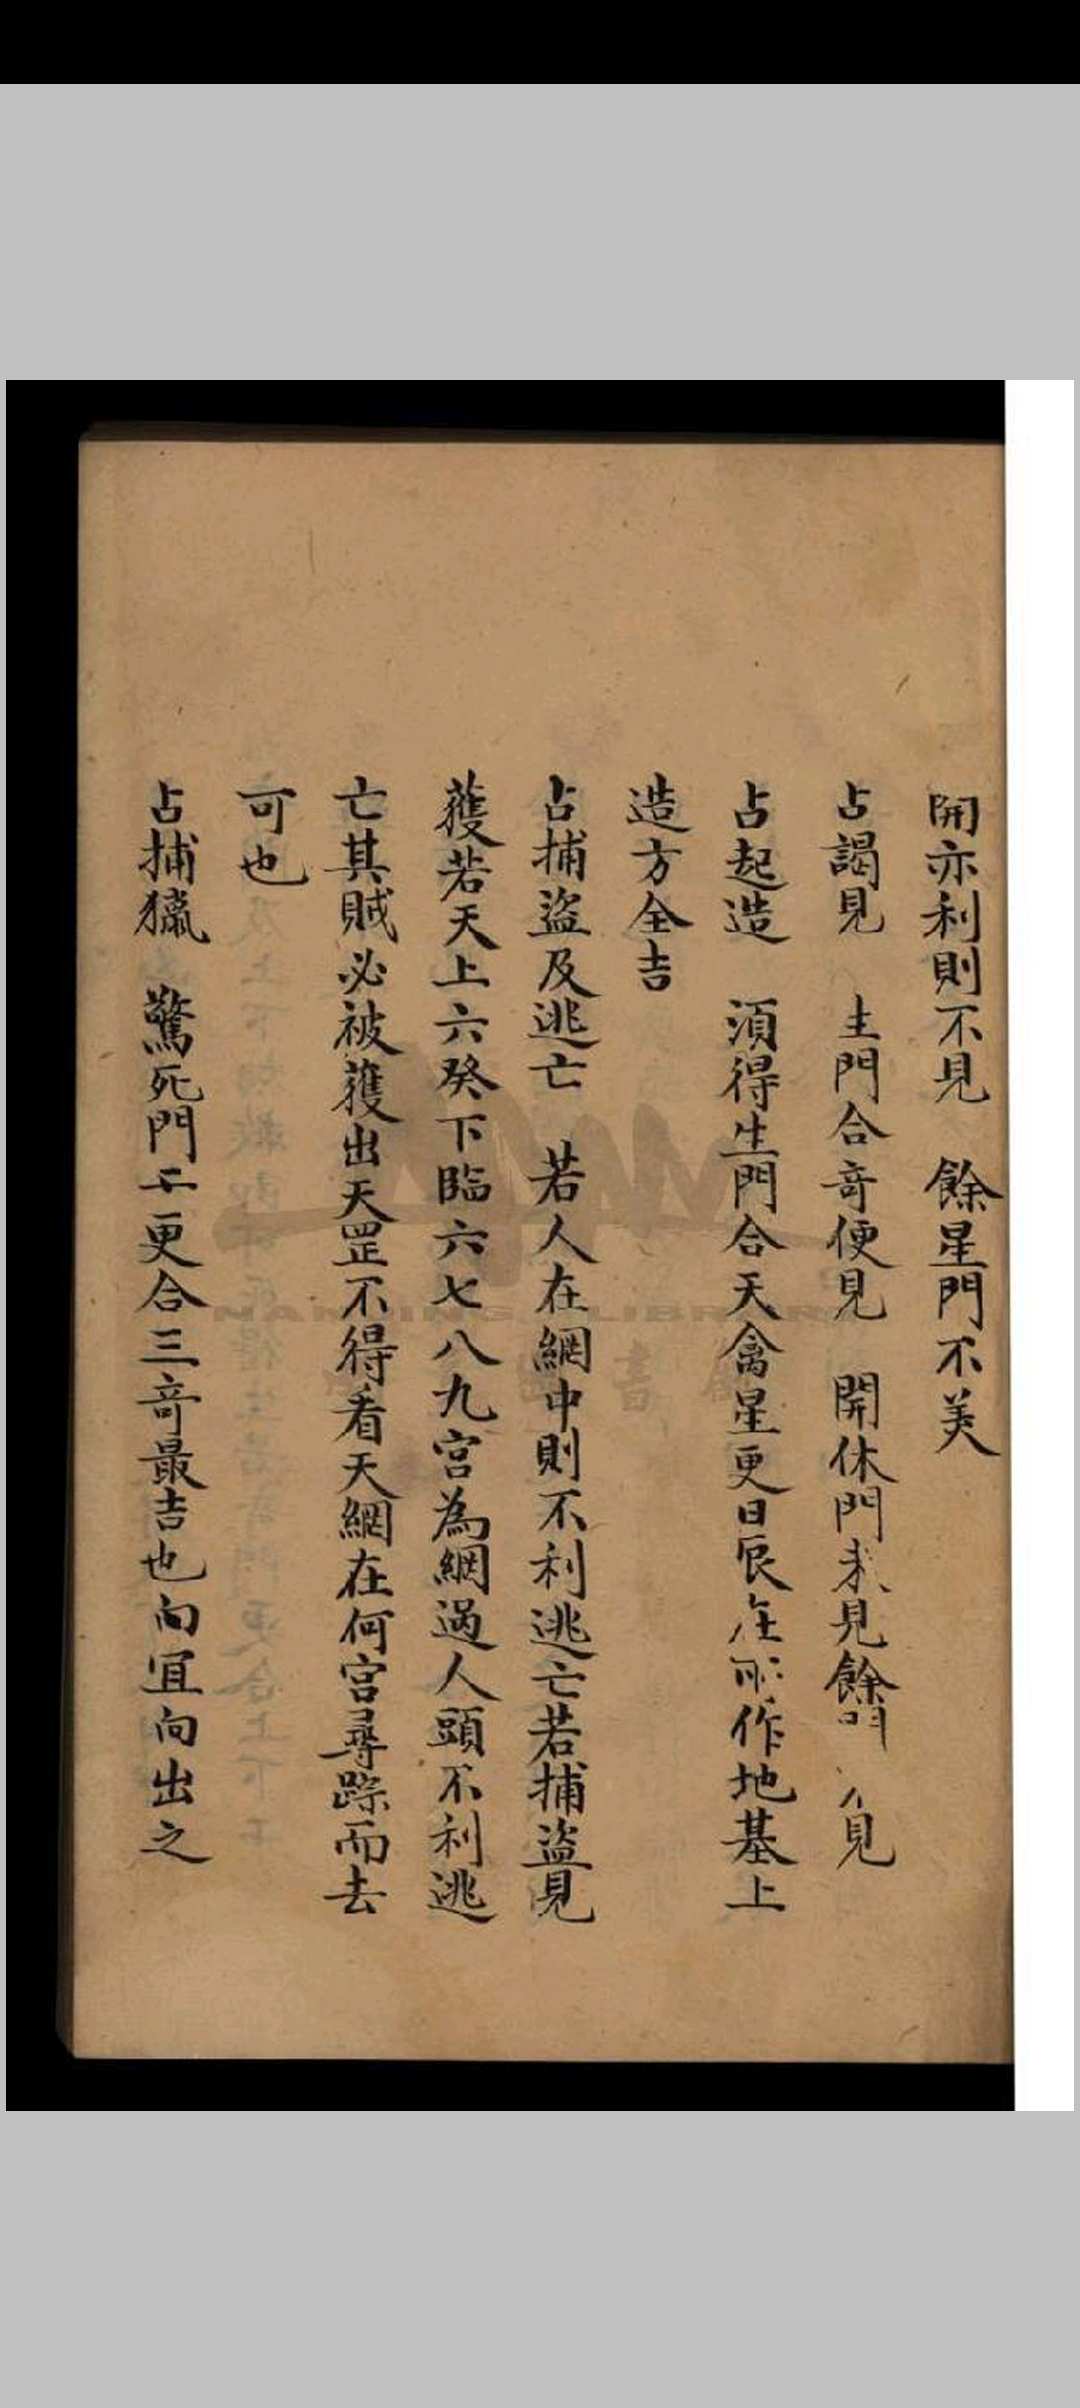 開亦利則不見　餘星門不美
占謁見　生門合竒便見　開休門求見餘門 見
占起造　須得生門合天禽星更日辰在所作地基上
造方全吉
占捕盜及逃亡　若人在網中則不利逃亡若捕盜見
獲若天上六癸下臨六七八九宮為網過人頭不利逃
亡其賊必被獲出天罡不得看天網在何宮尋踪而去
可也
占捕獵　驚死門 更合三竒最吉也向宜向出之
NANJING LIBRARY